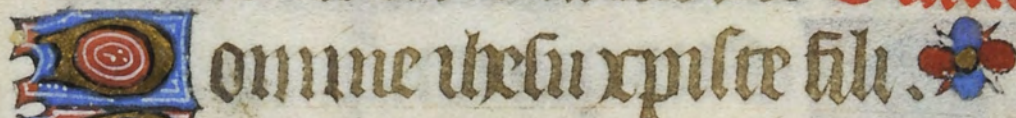 Domine ihesu xpiste fili.